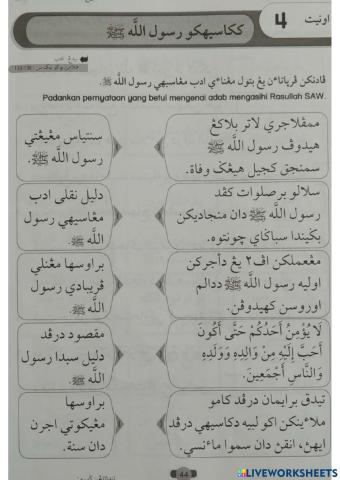 اونيت 4
ككاسيهكو رسول اللّٰه ﷺ
ڤادنكن ڤرياتاءن يڠ بتول مڠناءي ادب مڠاسيهي رسول اللّٰه ﷺ.
Padankan pernyataan yang betul mengenai adab mengasihi Rasullah SAW.
ممڤلاجري لاتر بلاكڠ
هيدوڤ رسول اللّٰه ﷺ
سمنجق كچيل هيڠݢ وفاة.
سنتياس مڠيڠتي
رسول اللّٰه ﷺ.
سلالو برصلوات كڤد
رسول اللّٰه ﷺ دان منجاديكن
بݢيندا سباݢاي چونتوه.
دليل نقلي ادب
مڠاسيهي رسول
اللّٰه ﷺ.
مڠعملكن اڤ٢ يڠ دأجركن
اوليه رسول اللّٰه ﷺ ددالم
اوروسن كهيدوڤن.
براوسها مڠنلي
ڤريبادي رسول
اللّٰه ﷺ.
لَا يُؤْمِنُ أَحَدُكُمْ حَتَّى أَكُونَ
أَحَبَّ إِلَيْهِ مِنْ وَالِدِهِ وَوَلَدِهِ
وَالنَّاسِ أَجْمَعِينَ.
مقصود درڤد
دليل سبدا رسول
اللّٰه ﷺ.
تيدق برايمان درڤد كامو
ملاءينكن اكو لبيه دكاسيهي درڤد
ايهڽ، انقڽ دان سموا ماءنسي.
براوسها
مڠيكوتي اجرن
دان سنة.
44
LIVEWORKSHEETS